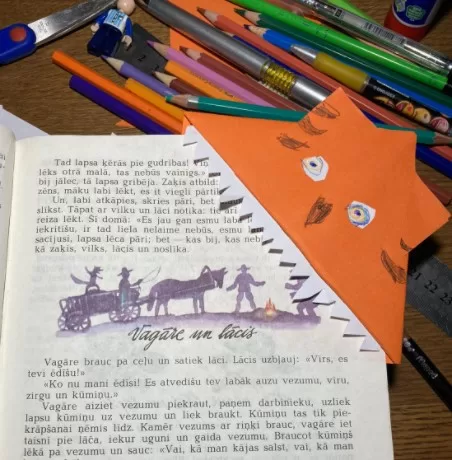 Tad lapsa ķērās pie gudrības! Vin
lēks otrā malā, tas nebūs vainīgs.»
bij jālec, tā lapsa gribēja. Zaķis atbild:
zēns, māku labi lēkt, es it viegli pārtik
Un, labi atkāpies, skries pāri, bet
slīkst. Tāpat ar vilku un lāci notika: tie arī
reiza lēkt. Ši domā: «Es jau gan esmu laba l
iekritīšu, ir tad liela nelaime nebūs, esmu l
sacījusi, lapsa lēca pāri; bet — kas bij, kas neb
kā zaķis, vilks, lācis un noslīka.
Vagāre un lācis
Vagāre brauc pa ceļu un satiek lāci. Lācis uzbļauj: «Vīrs, es
tevi ēdīšu!»
«Ko nu mani ēdīsi! Es atvedīšu tev labāk auzu vezumu, vīru,
zirgu un kūmiņu.»
Vagāre aiziet vezumu piekraut, paņem darbinieku, uzliek
lapsu kūmiņu uz vezumu un liek braukt. Kūmiņas tas tik pie-
krāpšanai ņēmis līdz. Kamēr vezums ar riņķi brauc, vagāre iet
taisni pie lāča, iekur uguni un gaida vezumu. Braucot kūmiņš
lēkā pa vezumu un sauc: «Vai, kā man kājas salst, vai, kā man